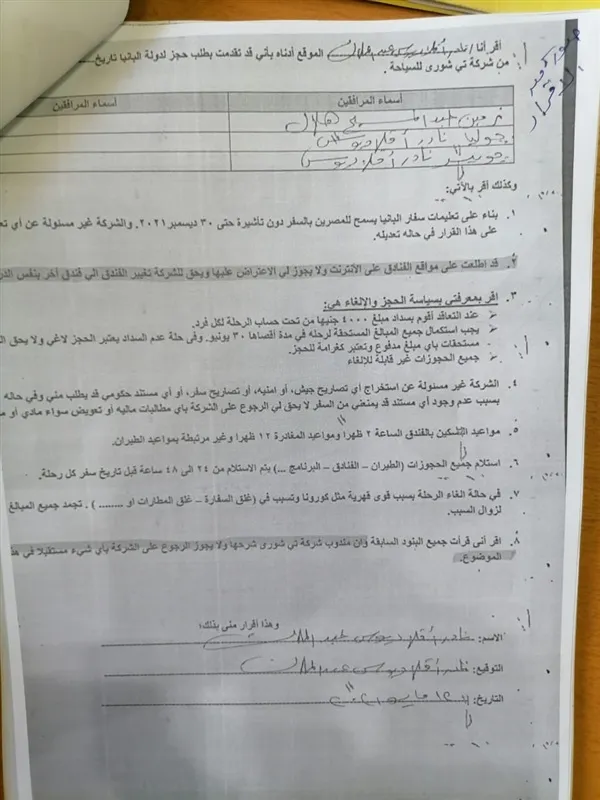 صورة من
الاقرار
أقر أنا / نادر أقلاديوس عبد الملاك الموقع أدناه بأني قد تقدمت بطلب حجز لدولة البانيا تاريخ
من شركة تي شورى للسياحة .
أسماء المرافقين أسماء المرافقين
نرمين عبد المسيح هلال
جوليا نادر أقلاديوس
نادر أقلاديوس
وكذلك أقر بالآتي:
١. بناء على تعليمات سفار البانيا يسمح للمصرين بالسفر دون تأشيرة حتى ٣٠ ديسمبر ٢٠٢١. والشركة غير مسئولة عن أي تع
على هذا القرار في حاله تعديله.
٢. قد اطلعت على مواقع الفنادق على الأنترنت ولا يجوز لي الاعتراض عليها ويحق للشركة تغيير الفندق الي فندق أخر بنفس الدر
٣. اقر بمعرفتي بسياسة الحجز والإلغاء هي:
عند التعاقد أقوم بسداد مبلغ ٤٠٠٠ جنيها من تحت حساب الرحلة لكل فرد.
يجب استكمال جميع المبالغ المستحقة لرحله في مدة أقصاها ٣٠ يونيو. وفى حلة عدم السداد يعتبر الحجز لاغي ولا يحق ال
- مستحقات بأي مبلغ مدفوع وتعتبر كغرامة للحجز.
جميع الحجوزات غير قابلة للالغاء
٤. الشركة غير مسئولة عن استخراج أي تصاريح جيش، أو امنيه، أو تصاريح سفر، أو أي مستند حكومي قد يطلب مني وفي حاله
بسبب عدم وجود أي مستند قد يمنعني من السفر لا يحق لي الرجوع على الشركة باي مطالبات ماليه أو تعويض سواء مادي أو م
٥. مواعيد التسكين بالفندق الساعة ٢ ظهرا ومواعيد المغادرة ١٢ ظهرا وغير مرتبطة بمواعيد الطيران.
٦. استلام جميع الحجوزات (الطيران – الفنادق – البرنامج ...) يتم الاستلام من ٢٤ الى ٤٨ ساعة قبل تاريخ سفر كل رحلة.
٧. في حالة الغاء الرحلة بسبب قوى قهرية مثل كورونا وتسبب في (غلق السفارة – غلق المطارات او ........) . تجمد جميع المبالغ
لزوال السبب.
٨. اقر أنى قرأت جميع البنود السابقة وان مندوب شركة تي شورى شرحها ولا يجوز الرجوع على الشركة بأي شيء مستقبلا في هذ
الموضوع.
وهذا أقرار مني بذلك؛
الاسم: نادر أقلاديوس عبد الملاك
التوقيع: نادر أقلاديوس عبد الملاك
التاريخ: ١٢ مايو ٢٠٢١